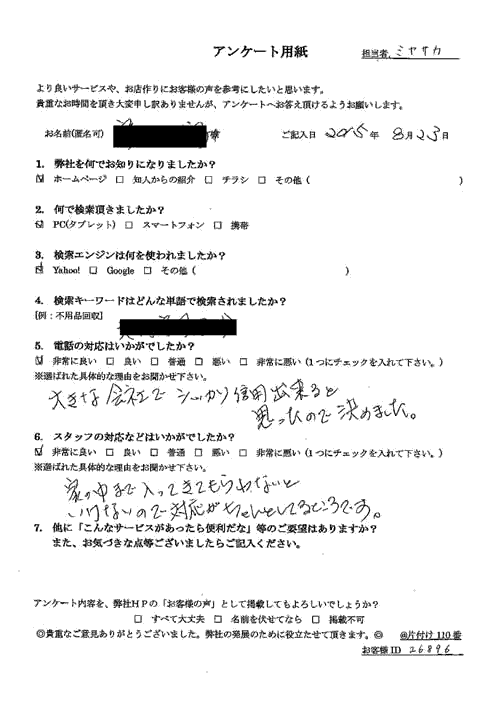 アンケート用紙
担当者 ミヤサカ
より良いサービスや、お店作りにお客様の声を参考にしたいと思います。
貴重なお時間を頂き大変申し訳ありませんが、アンケートへお答え頂けるようお願いします。
お名前(匿名可) 様 ご記入日 2015年 8月23日
1. 弊社を何でお知りになりましたか?
☑ ホームページ □ 知人からの紹介 □ チラシ □ その他 ( )
2. 何で検索頂きましたか?
☑ PC(タブレット) □ スマートフォン □ 携帯
3. 検索エンジンは何を使われましたか?
☑ Yahoo! □ Google □ その他 ( )
4. 検索キーワードはどんな単語で検索されましたか?
[例:不用品回収]
5. 電話の対応はいかがでしたか?
☑ 非常に良い □ 良い □ 普通 □ 悪い □ 非常に悪い (1つにチェックを入れて下さい。)
※選ばれた具体的な理由をお聞かせ下さい。
大きな会社でシッカリ信用出来ると
思ったので決めました。
6. スタッフの対応などはいかがでしたか?
☑ 非常に良い □ 良い □ 普通 □ 悪い □ 非常に悪い (1つにチェックを入れて下さい。)
※選ばれた具体的な理由をお聞かせ下さい。
家の中まで入ってきてもらわないと
いけないので対応がちゃんとしてるところです。
7. 他に「こんなサービスがあったら便利だな」等のご要望はありますか?
また、お気づきな点等ございましたらご記入ください。
アンケート内容を、弊社HPの「お客様の声」として掲載してもよろしいでしょうか?
□ すべて大丈夫 □ 名前を伏せてなら □ 掲載不可
◎貴重なご意見ありがとうございました。弊社の発展のために役立たせて頂きます。◎ @片付け110番
お客様ID 26896